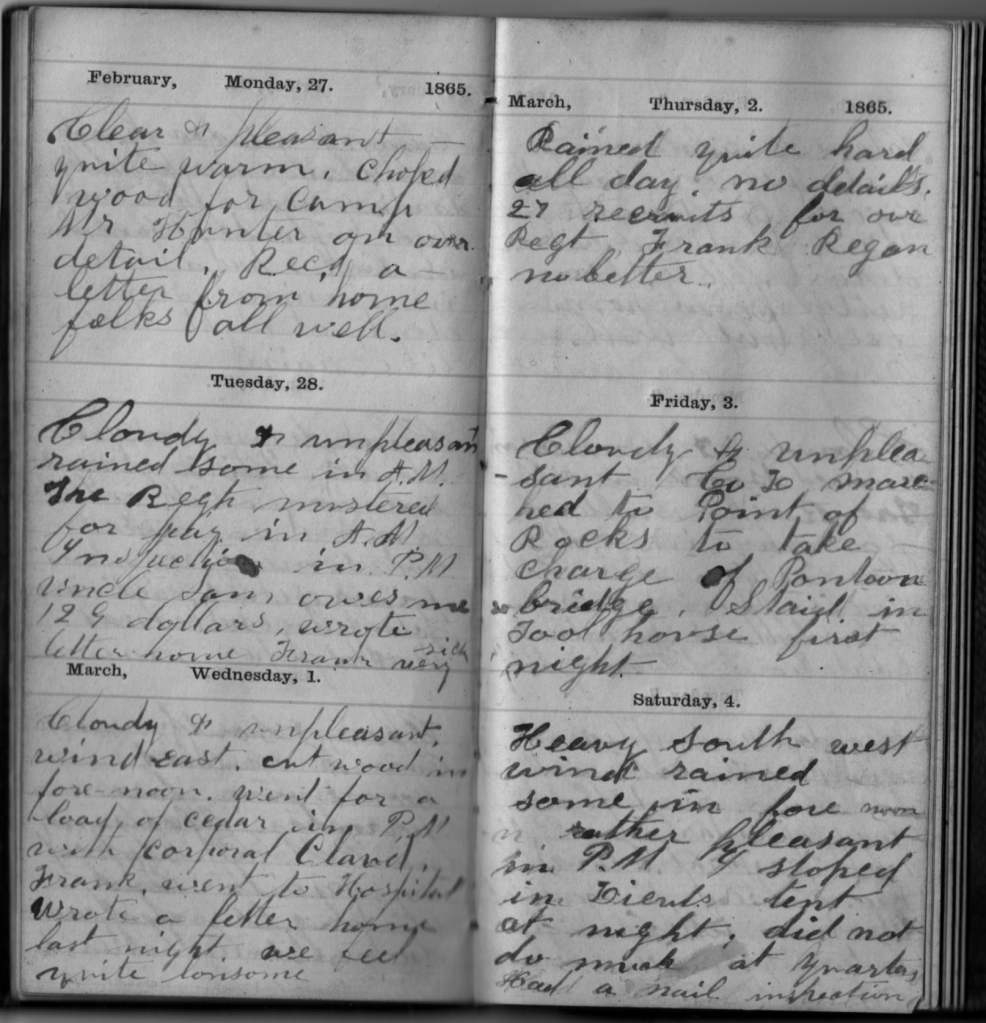 February, Monday, 27. 1865.
Clear & pleasant
quite warm. choped
wood for camp
Mr Hunter on our
detail. Recd a
letter from home
folks all well.
Tuesday, 28.
Cloudy & unpleasant
rained some in A.M.
The Regt mustered
for pay in A.M
Inspection in P.M
uncle Sam owes me
129 dollars, wrote
letter home Frank very sick
March, Wednesday, 1.
Cloudy & unpleasant.
wind east. cut wood in
fore-noon. went for a
load of cedar in P.M
with Corporal
Frank. went to Hospital
Wrote a letter home
last night. we feel
quite lonsome
March, Thursday, 2. 1865.
Rained quite hard
all day. no details.
27 recruits for our
Regt. Frank Regan
no better.
Friday, 3.
Cloudy & unplea
-sant Co marc-
hed to Point of
Rocks to take
charge of Pontoon
bridge. Staid in
Tool house first
night.
Saturday, 4.
Heavy South west
wind rained
some in fore noon
rather pleasant
in P.M. I stoped
in tent
at night. did not
do much at quarters
Had a nail inspection